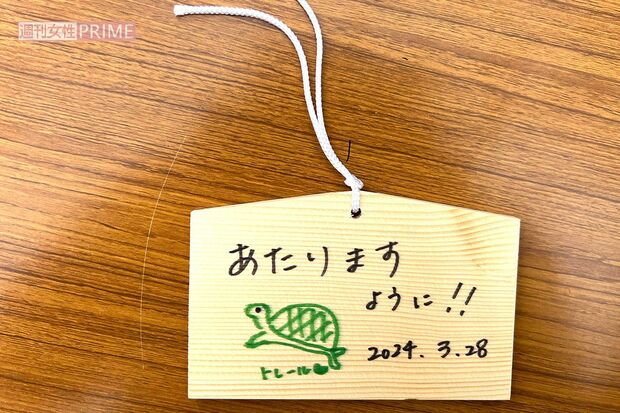 週刊女性PRIME
あたります
ように!!
トレール
2024.3.28